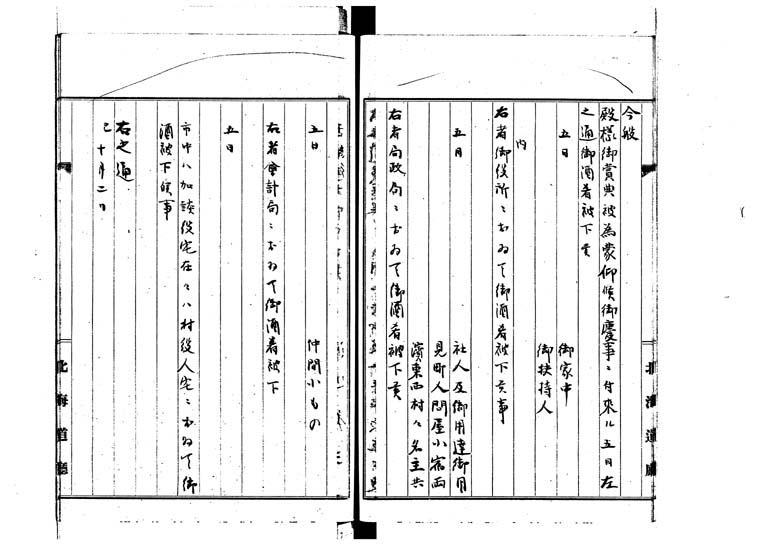 今般
殿様御賞典被為蒙仰候御慶事ニ付来ル五日左
之通御酒肴被下候
五日
御家中
御扶持人
内
右者御役所ニおゐて御酒肴被下候事
五日
社人及御用達御用
見町人問屋小宿両
濱東西村々名主共
右者局政局ニおゐて御酒肴被下候
五日
仲間小もの
右者会計局ニおゐて御酒肴被下
五日
市中ハ加談役宅在々ハ村役人宅ニおゐて御
酒被下候事
右之通
巳十月二日
北海道廳
北海道廳